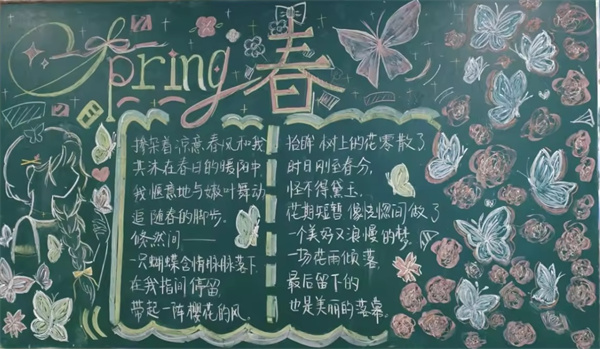 Spring 春
携朵着凉意春风和我
共沐在春日的暖阳中,
我惬意地与嫩叶舞动
追随春的脚步。
倏然间——
一只蝴蝶含情脉脉落下
在我指间停留,
带起一阵樱花的风。
抬眸 树上的花零散了
时日刚至春分,
怪不得黛玉,
花期短暂 像恍惚间做了
一个美好又浪漫的梦。
一场花雨倾落
最后留下的
也是美丽的落幕。